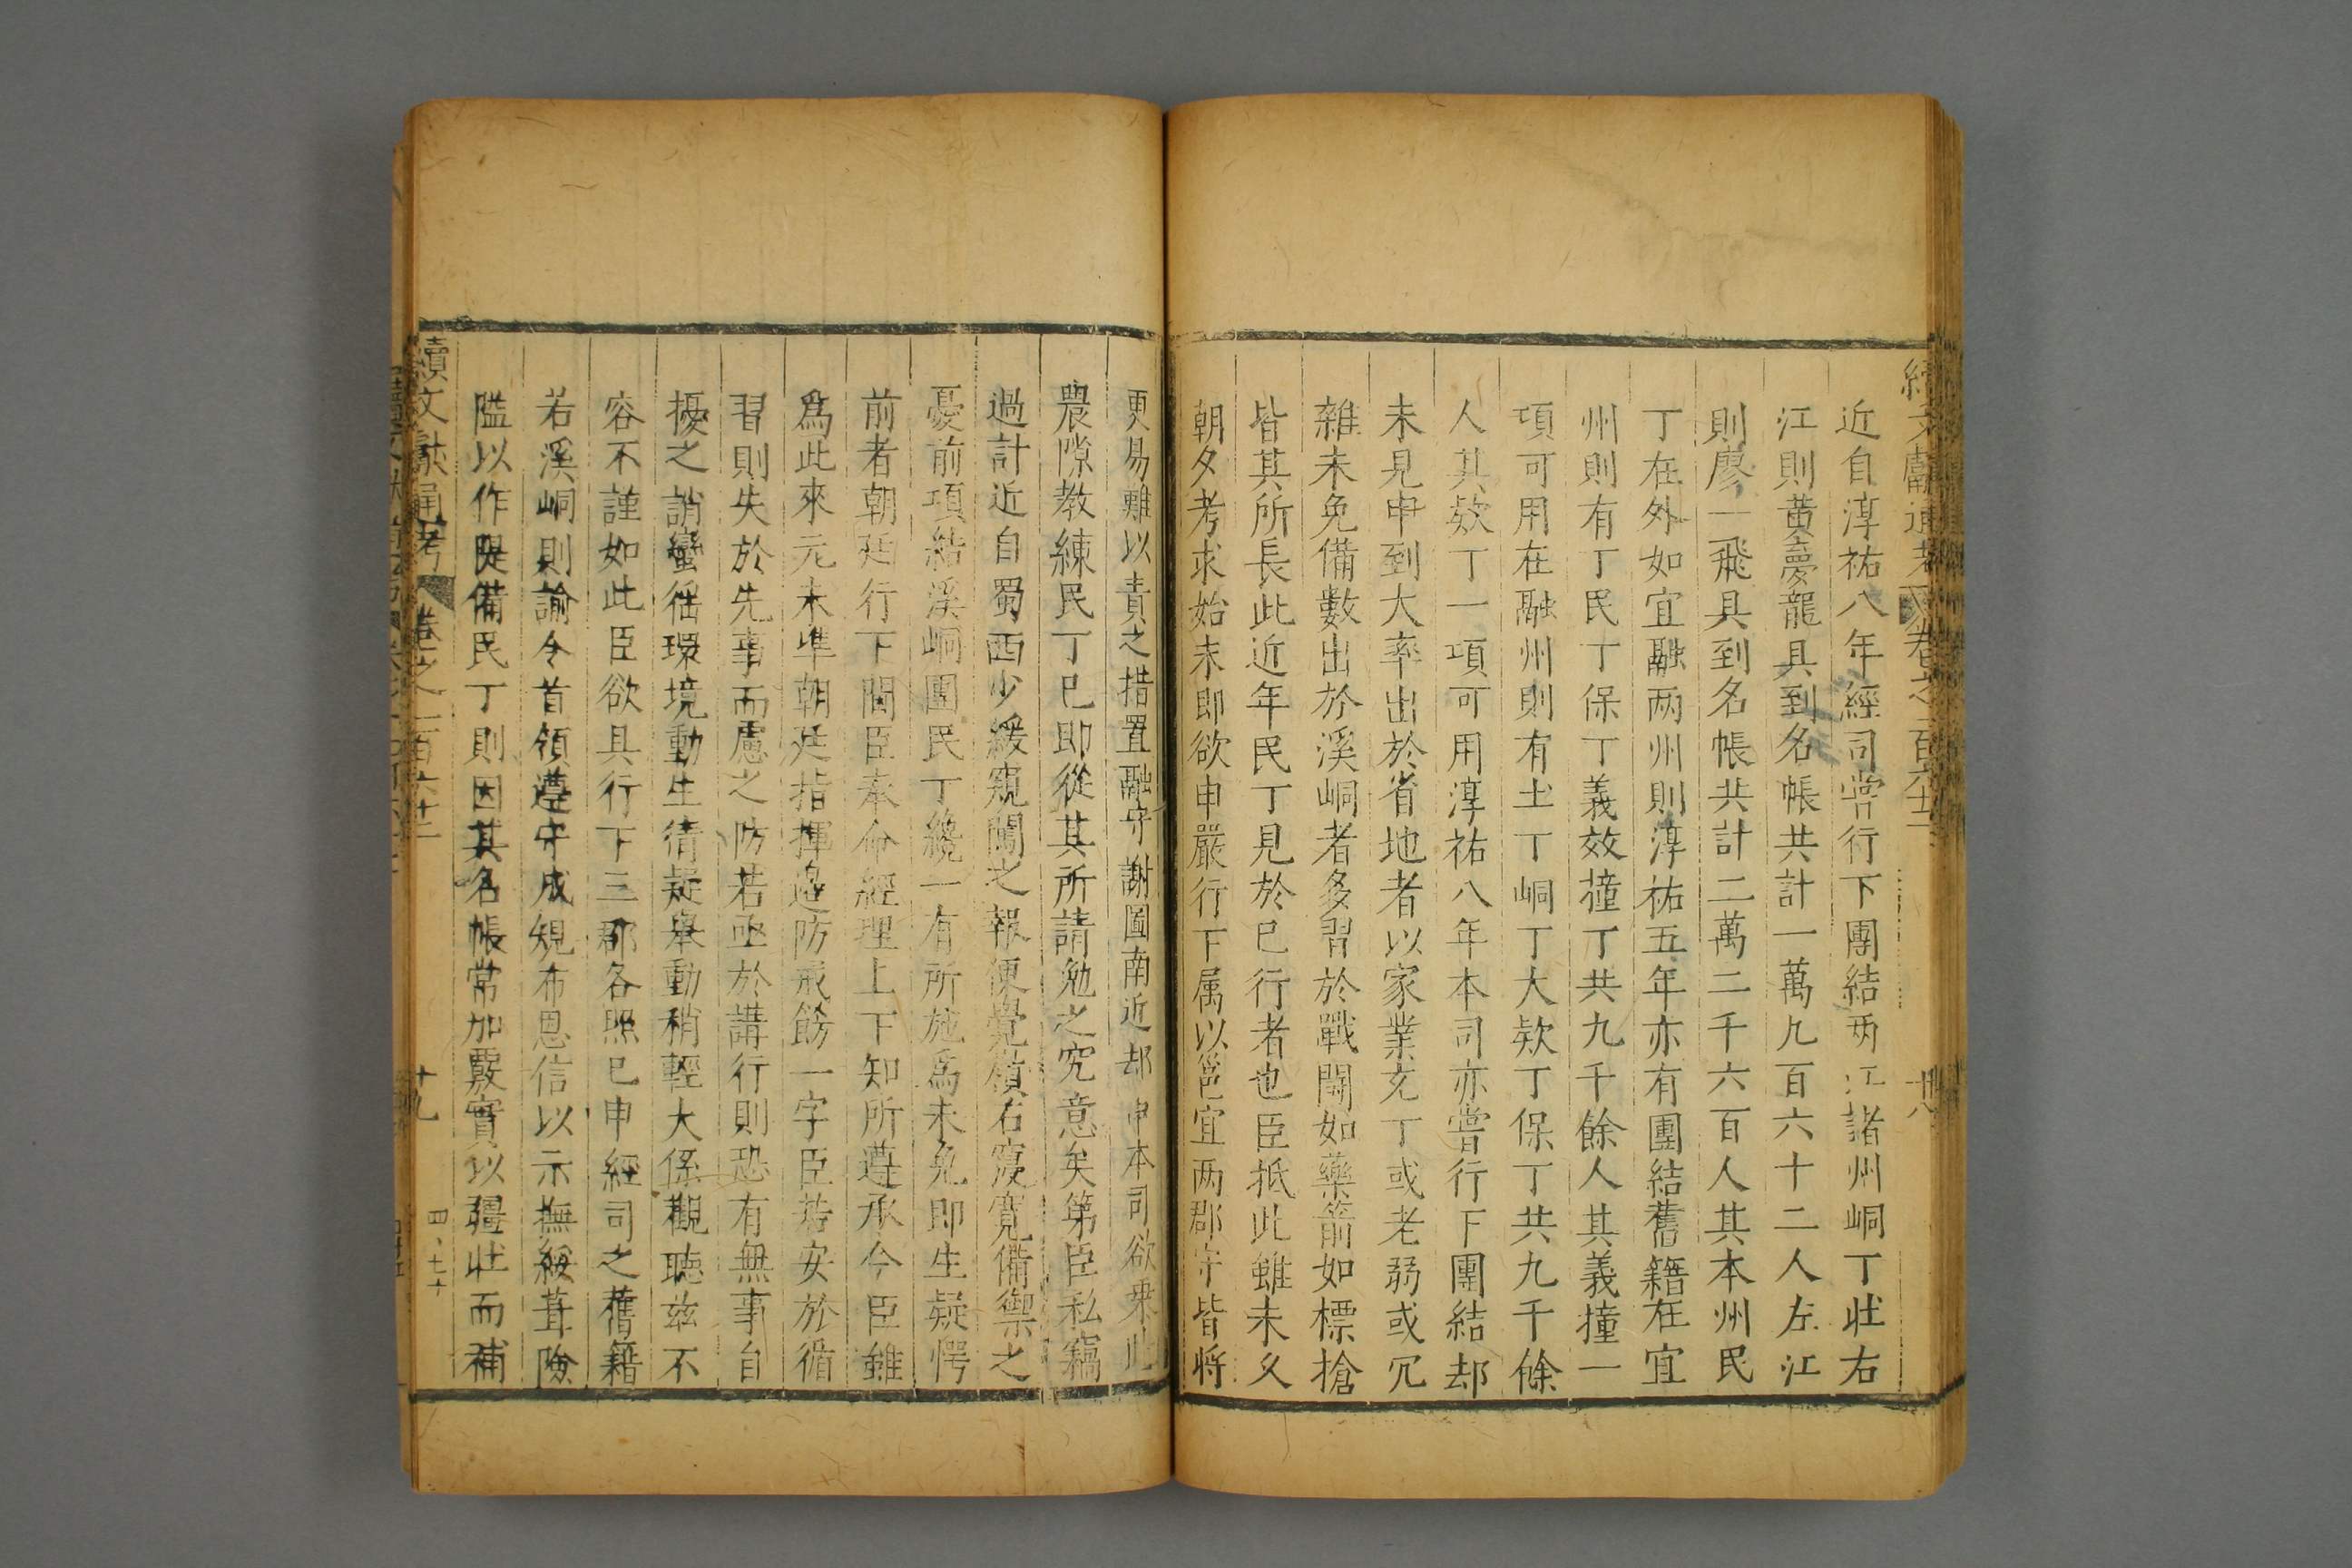 續文獻通考 卷之一百六十二 十八
近自淳祐八年經司嘗行下團結兩江諸州峒丁壯右
江則黃夢龍具到名帳共計一萬九百六十二人左江
則廖一飛具到名帳共計二萬二千六百人其本州民
丁在外如宜融兩州則淳祐五年亦有團結舊籍在宜
州則有丁民丁保丁義效撞丁共九千餘人其義撞一
項可用在融州則有土丁峒丁大欵丁保丁共九千餘
人其欵丁一項可用淳祐八年本司亦嘗行下團結却
未見申到大率出於省地者以家業充丁或老弱或冗
雜未免備數出於溪峒者多習於戰鬬如藥箭如標搶
皆其所長此近年民丁見於已行者也臣抵此雖未久
朝夕考求始末即欲申嚴行下属以邕宜两郡守皆將
更易難以責之措置融守謝圖南近却申本司欲乘此
農隙教練民丁已即從其所請勉之究意矣第臣私竊
過計近自蜀西少緩窺闖之報便覺嶺右寖寬備禦之
憂前項結溪峒團民丁纔一有所施爲未免即生疑愕
前者朝廷行下閫臣奉命經理上下知所遵承今臣雖
爲此來元未準朝廷指揮邊防戒飭一字臣若安於循
習則失於先事而慮之防若亟於講行則恐有無事自
擾之誚蠻徭環境動生猜疑舉動稍輕大係觀聽兹不
容不謹如此臣欲具行下三郡各照已申經司之舊籍
若溪峒則諭令首領遵守成規布恩信以示撫綏葺險
隘以作隄備民丁則因其名帳常加覈實以疆壯而補
續文獻通考 卷之一百六十二 十九 四、七十